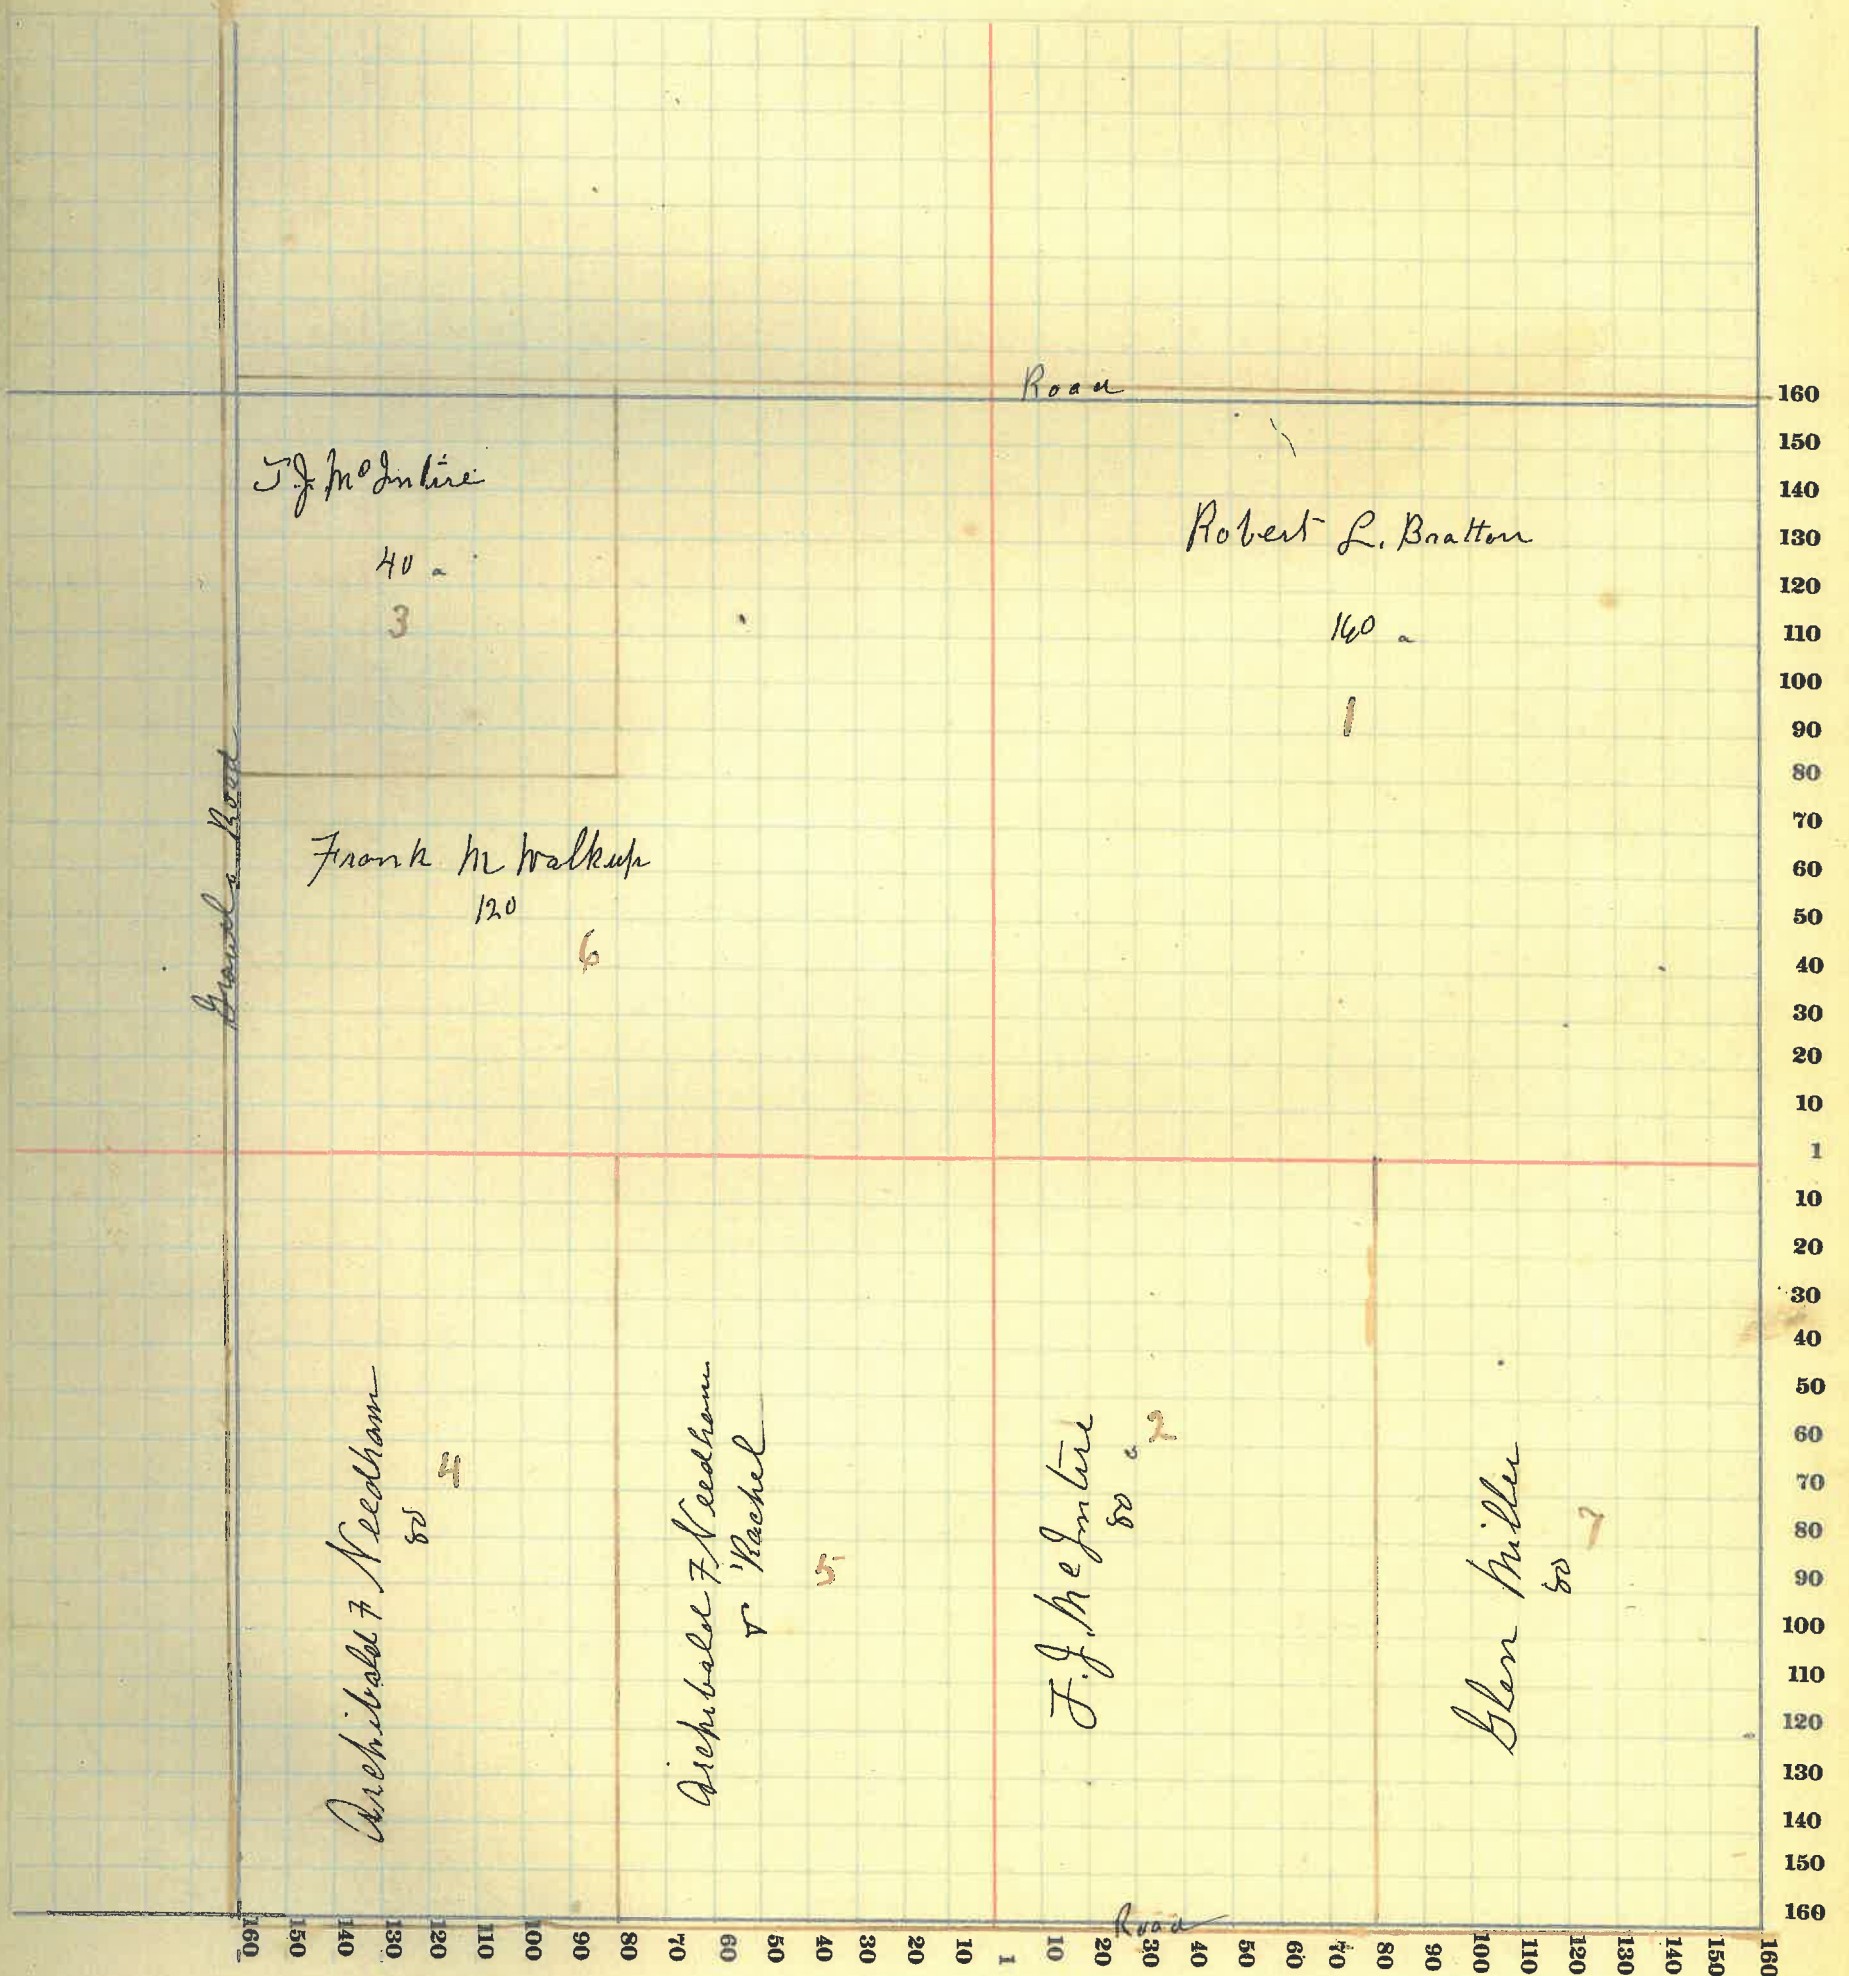 Road
T. J. McIntire
40 a
3
Robert L. Bratton
160 a
1
Gravel Road
Frank M Walkup
120
6
Archibald F Needham
80
4
Archibald F Needham
& Rachel
5
T. J. McIntire
80 a
2
Glen Miller
80
7
Road
160
150
140
130
120
110
100
90
80
70
60
50
40
30
20
10
1
10
20
30
40
50
60
70
80
90
100
110
120
130
140
150
160
160 150 140 130 120 110 100 90 80 70 60 50 40 30 20 10 1 10 20 30 40 50 60 70 80 90 100 110 120 130 140 150 160